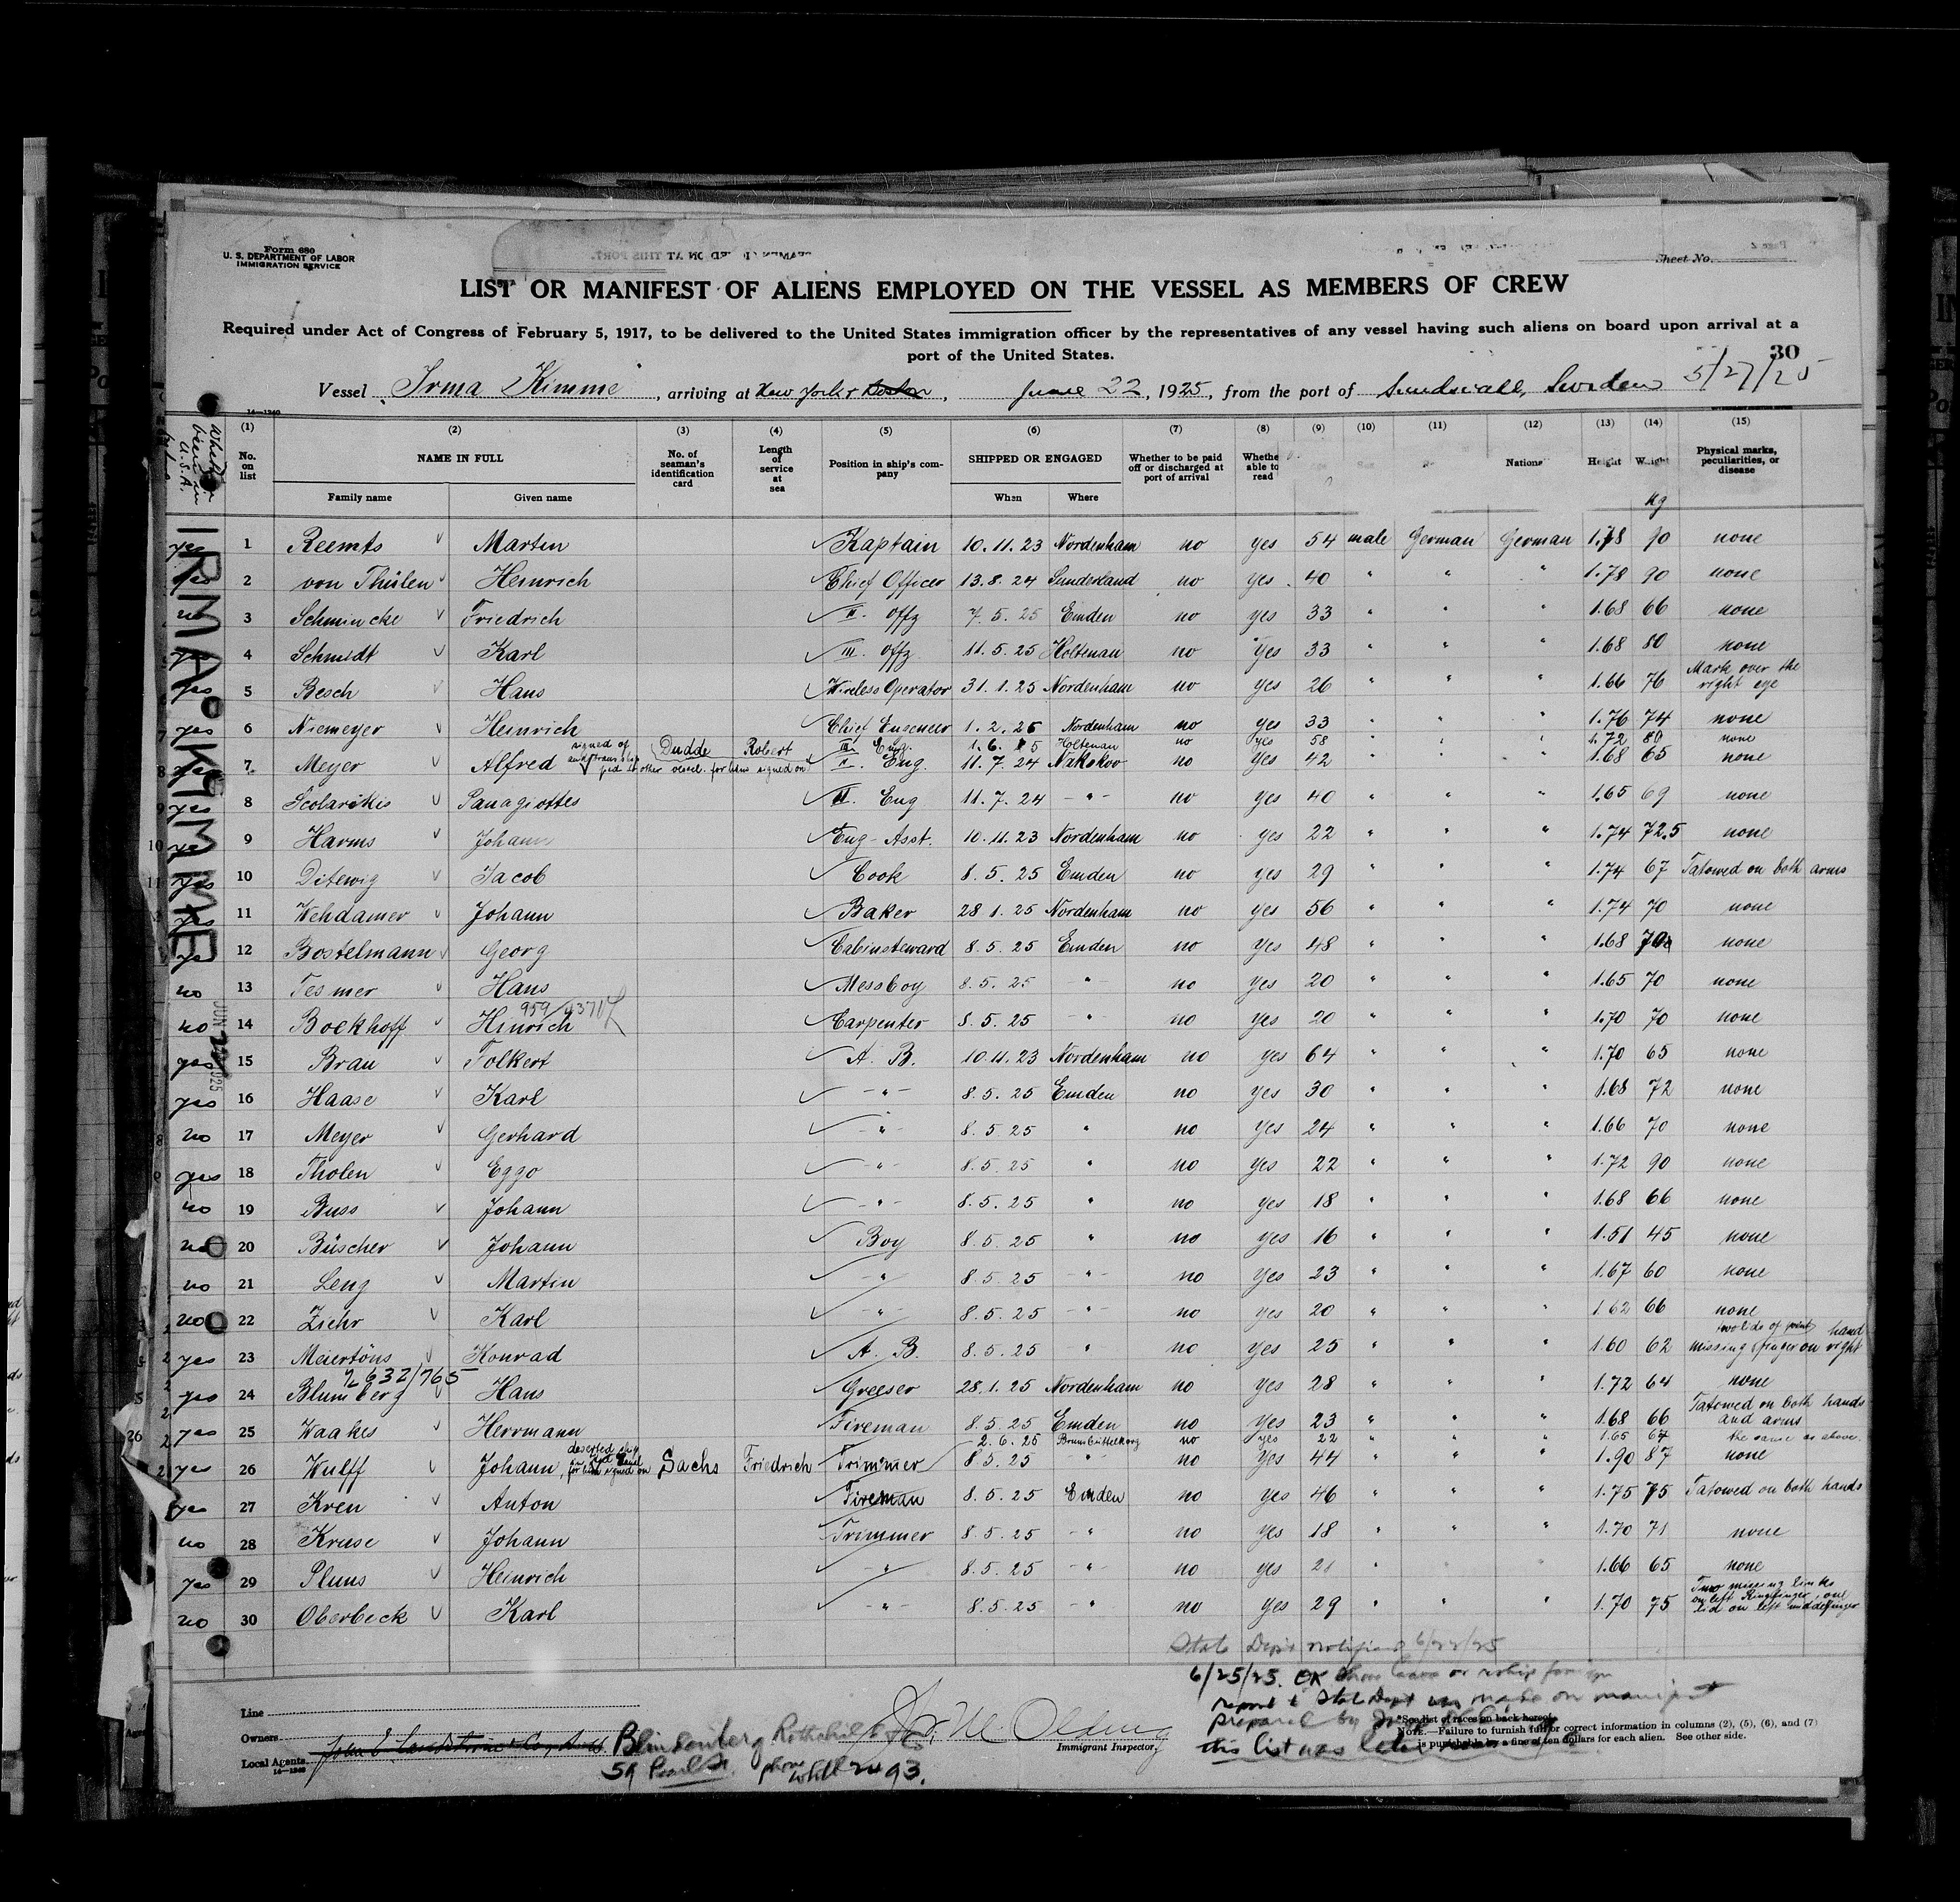 Form 680
U. S. DEPARTMENT OF LABOR
IMMIGRATION SERVICE
Sheet No.
LIST OR MANIFEST OF ALIENS EMPLOYED ON THE VESSEL AS MEMBERS OF CREW
Required under Act of Congress of February 5, 1917, to be delivered to the United States immigration officer by the representatives of any vessel having such aliens on board upon arrival at a
port of the United States.
30
Vessel Irma Kimme, arriving at New York, June 22, 1925, from the port of Sundsvall, Sweden 5/27/25
(1) (2) (3) (4) (5) (6) (7) (8) (9) (10) (11) (12) (13) (14) (15)
No. on list NAME IN FULL No. of seaman's identification card Length of service at sea Position in ship's company SHIPPED OR ENGAGED Whether to be paid off or discharged at port of arrival Whether able to read Height Weight Physical marks, peculiarities, or disease
Family name Given name When Where kg
IRMA KIMME
yes 1 Reemts Marten Kaptain 10.11.23 Nordenham no yes 54 male German German 1.78 90 none
yes 2 von Thülen Heinrich Chief Officer 13.8.24 Sunderland no yes 40 " " " 1.78 90 none
no 3 Schmincke Friedrich II. Offz 7.5.25 Emden no yes 33 " " " 1.68 66 none
yes 4 Schmidt Karl III. Offz 11.5.25 Holtenau no yes 33 " " " 1.68 80 none
yes 5 Besch Hans Wireless Operator 31.1.25 Nordenham no yes 26 " " " 1.66 76 Mark over the right eye
yes 6 Niemeyer Heinrich Chief Engeneer 1.2.25 Nordenham no yes 33 " " " 1.76 74 none
Dudde Robert II. Eng. 1.6.25 Holtenau no yes 58 " " " 1.72 80 none
yes 7 Meyer Alfred for him signed on II. Eng. 11.7.24 Nakskov no yes 42 " " " 1.68 65 none
yes 8 Scolarikis Panagiottes II. Eng 11.7.24 -"- no yes 40 " " " 1.65 69 none
yes 9 Harms Johann Eng-Asst. 10.11.23 Nordenham no yes 22 " " " 1.74 72.5 none
yes 10 Ditewig Jacob Cook 8.5.25 Emden no yes 29 " " " 1.74 67 Tatowed on both arms
yes 11 Wehdamer Johann Baker 28.1.25 Nordenham no yes 56 " " " 1.74 70 none
yes 12 Bostelmann Georg Cabinsteward 8.5.25 Emden no yes 48 " " " 1.68 70 none
no 13 Tesmer Hans Messboy 8.5.25 -"- no yes 20 " " " 1.65 70 none
no 14 Boekhoff Hinrich Carpenter 8.5.25 -"- no yes 20 " " " 1.70 70 none
yes 15 Brau Folkert A. B. 10.11.23 Nordenham no yes 64 " " " 1.70 65 none
yes 16 Haase Karl -"- 8.5.25 Emden no yes 30 " " " 1.68 72 none
no 17 Meyer Gerhard -"- 8.5.25 " no yes 24 " " " 1.66 70 none
yes 18 Tholen Eggo -"- 8.5.25 " no yes 22 " " " 1.72 90 none
no 19 Buss Johann -"- 8.5.25 " no yes 18 " " " 1.68 66 none
no 20 Büscher Johann Boy 8.5.25 " no yes 16 " " " 1.51 45 none
no 21 Leng Martin -"- 8.5.25 -"- no yes 23 " " " 1.67 60 none
no 22 Ziehr Karl -"- 8.5.25 -"- no yes 20 " " " 1.62 66 none
yes 23 Meiertöns Konrad A. B. 8.5.25 " no yes 25 " " " 1.60 62 missing finger on right hand
632/765
yes 24 Blumberg Hans Greeser 28.1.25 Nordenham no yes 28 " " " 1.72 64 none
yes 25 Waakes Herrmann Fireman 8.5.25 Emden no yes 23 " " " 1.68 66 Tatowed on both hands and arms
2.6.25 Brunsbüttelkoog no yes 22 " " " 1.65 64 the same as above.
yes 26 Wulff Johann, deserted ship for him signed on Sachs Friedrich Trimmer 8.5.25 " no yes 44 " " " 1.90 87 none
yes 27 Kren Anton Fireman 8.5.25 Emden no yes 46 " " " 1.75 75 Tatowed on both hands
no 28 Kruse Johann Trimmer 8.5.25 -"- no yes 18 " " " 1.70 71 none
yes 29 Pluns Heinrich -"- 8.5.25 -"- no yes 21 " " " 1.66 65 none
no 30 Oberbeck Karl -"- 8.5.25 -"- no yes 29 " " " 1.70 75 Two missing links on left Ringfinger, one lid on left middelfinger
State Dept notified 6/22/25
6/25/25. OK
report to State Dept was made on manifest
prepared by
this list was later
Line
Owners
Local Agents
59 Pearl St. phone Whitehall 2493.
Immigrant Inspector.
*See list of races on back hereof.
NOTE.—Failure to furnish full or correct information in columns (2), (5), (6), and (7)
is punishable by a fine of ten dollars for each alien. See other side.